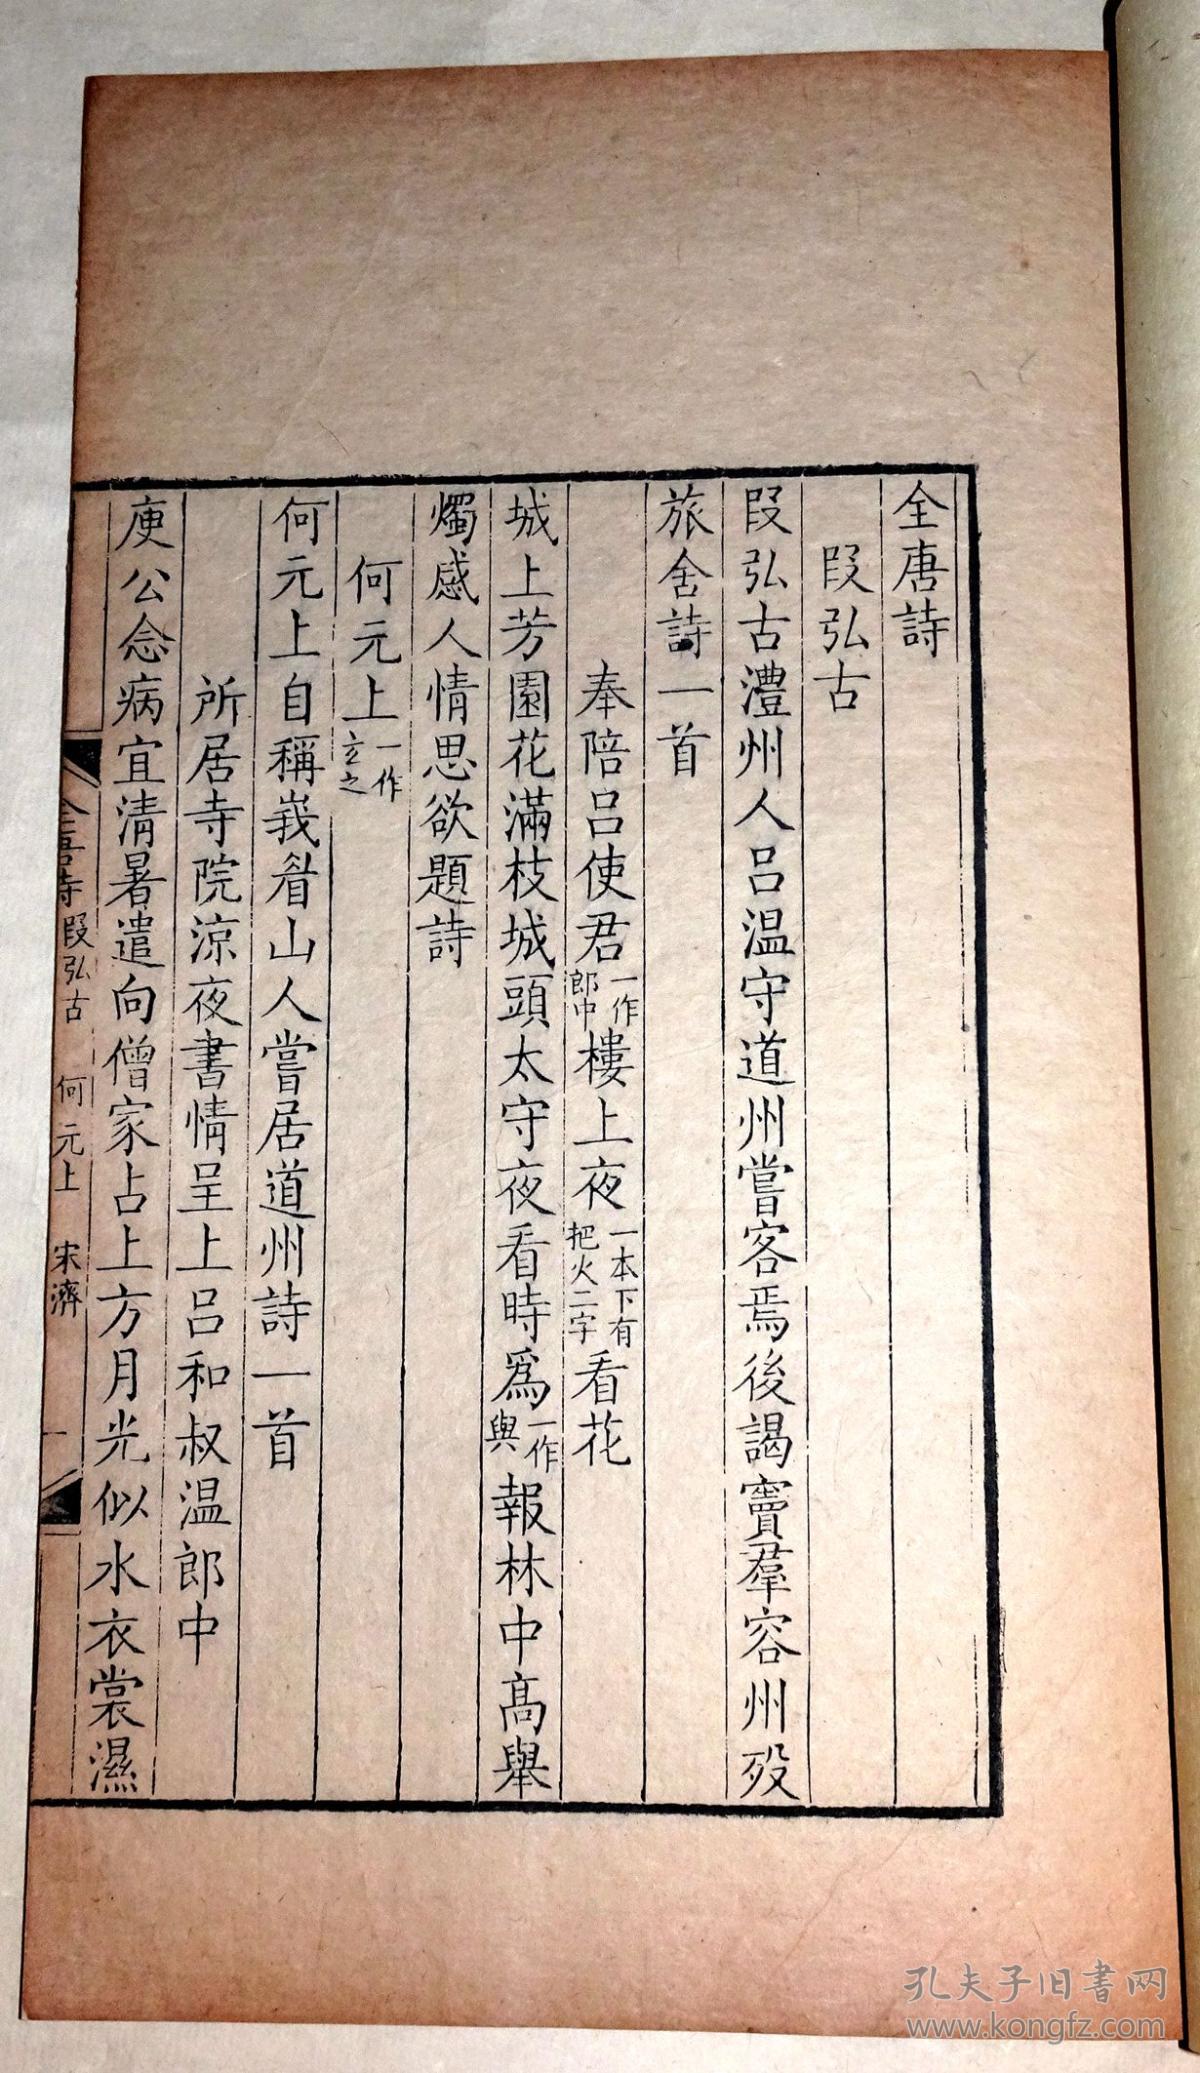 全唐詩
段弘古
段弘古澧州人呂温守道州嘗客焉後謁竇羣容州歿
旅舍詩一首
奉陪呂使君一作郎中樓上夜一本下有把火二字看花
城上芳園花滿枝城頭太守夜看時爲一作與報林中高舉
燭感人情思欲題詩
何元上一作玄之
何元上自稱峩眉山人嘗居道州詩一首
所居寺院涼夜書情呈上呂和叔温郎中
庾公念病宜清暑遣向僧家占上方月光似水衣裳濕
全唐詩 段弘古 何元上 宋濟 一
孔夫子旧书网
www.kongfz.com